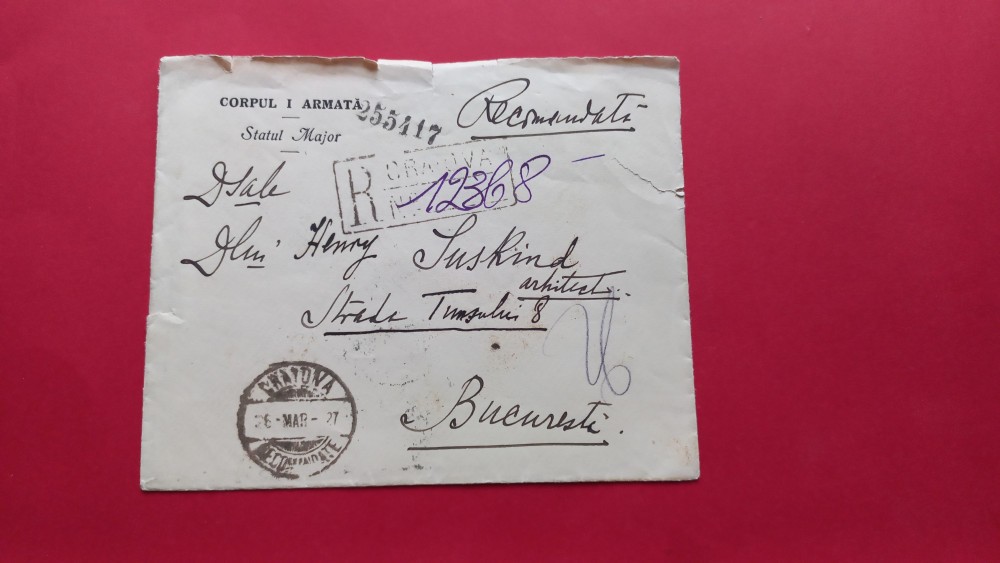 CORPUL I ARMATĂ
Statul Major
255417
Recomandată
R CRAIOVA 1
12368
Dsale
Dlui Henry Suskind
arhitect
Strada 8
București.
CRAIOVA
26-MAR-27
RECOMANDATE